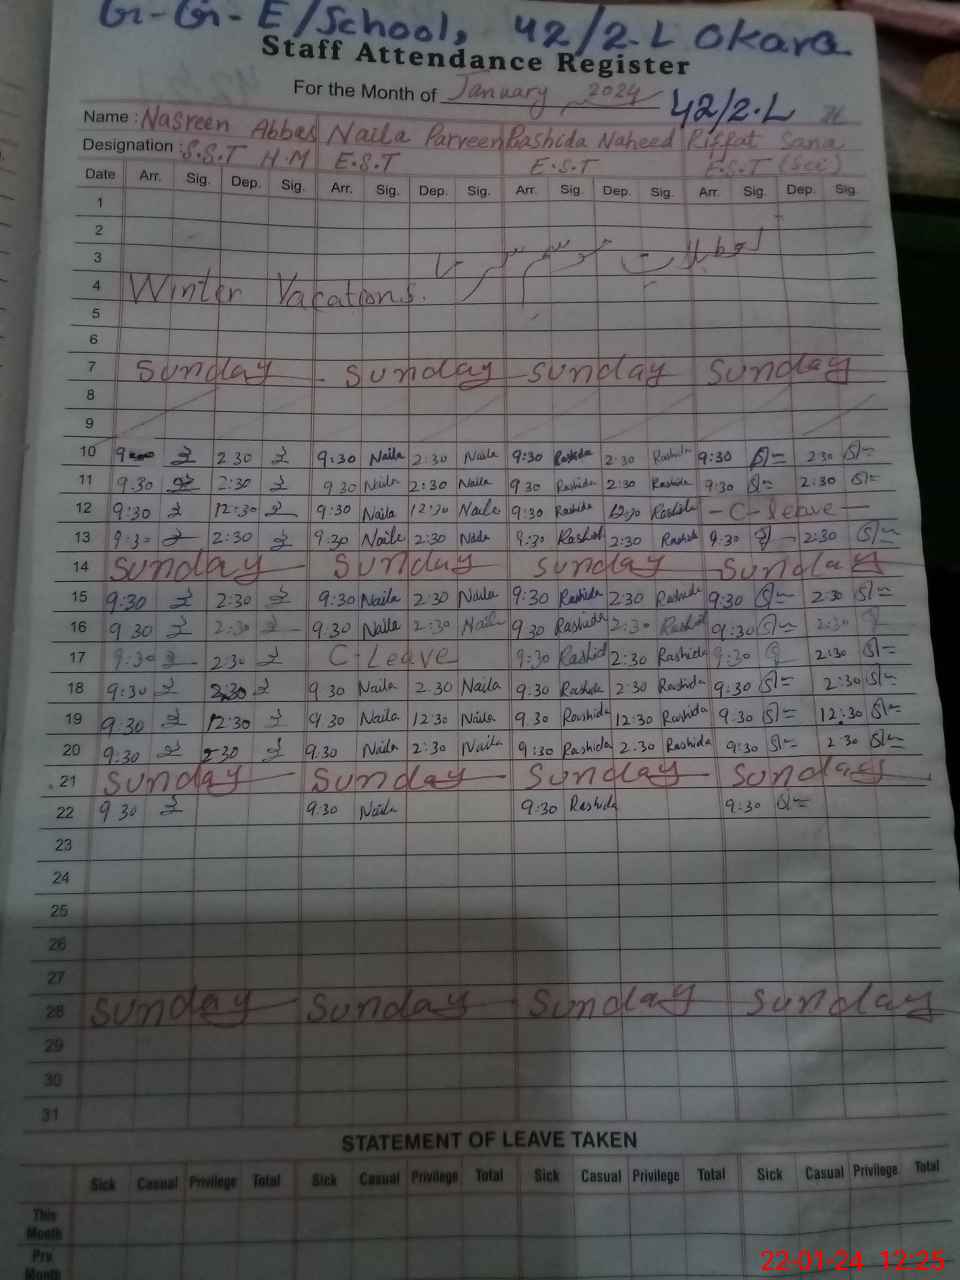 G-G-E/School, 42/2-L Okara
Staff Attendance Register
For the Month of January 2024
42/2-L
Name : Nasreen Abbas Naila Parveen Rashida Naheed Riffat Sana
Designation : S.S.T H.M E.S.T E.S.T E.S.T (Sci)
Date Arr. Sig. Dep. Sig. Arr. Sig. Dep. Sig. Arr. Sig. Dep. Sig. Arr. Sig. Dep. Sig.
1
2
3
4 Winter Vacations.
5
6
7 Sunday Sunday Sunday Sunday
8
9
10 2 30 9:30 Naila 2:30 Naila 9:30 Rashida 2:30 Rashida 9:30 2 30
11 9.30 2:30 9 30 Naila 2:30 Naila 9 30 Rashida 2:30 Rashida 9:30 2:30
12 9:30 12:30 9:30 Naila 12:30 Naila 9:30 Rashida 12:30 Rashida - C- leave -
13 9:30 2:30 9:30 Naila 2:30 Naila 9:30 Rashida 2:30 Rashida 9:30 2:30
14 Sunday Sunday Sunday Sunday
15 9:30 2:30 9:30 Naila 2:30 Naila 9:30 Rashida 2:30 Rashida 9:30 2:30
16 9 30 2:30 9.30 Naila 2:30 Naila 9 30 Rashida 2:30 Rashida 9:30 2:30
17 9:30 2:30 C-Leave 9:30 Rashida 2:30 Rashida 9:30 2:30
18 9:30 2:30 9 30 Naila 2.30 Naila 9.30 Rashida 2:30 Rashida 9:30 2:30
19 9:30 12:30 9 30 Naila 12:30 Naila 9.30 Rashida 12:30 Rashida 9:30 12:30
20 9:30 2 30 9.30 Naila 2:30 Naila 9:30 Rashida 2.30 Rashida 9:30 2:30
21 Sunday Sunday Sunday Sunday
22 9 30 9:30 Naila 9:30 Rashida 9:30
23
24
25
26
27
28 Sunday Sunday Sunday Sunday
29
30
31
STATEMENT OF LEAVE TAKEN
Sick Casual Privilege Total Sick Casual Privilege Total Sick Casual Privilege Total Sick Casual Privilege Total
This
Month
Pre
Month
22-01-24 12:25